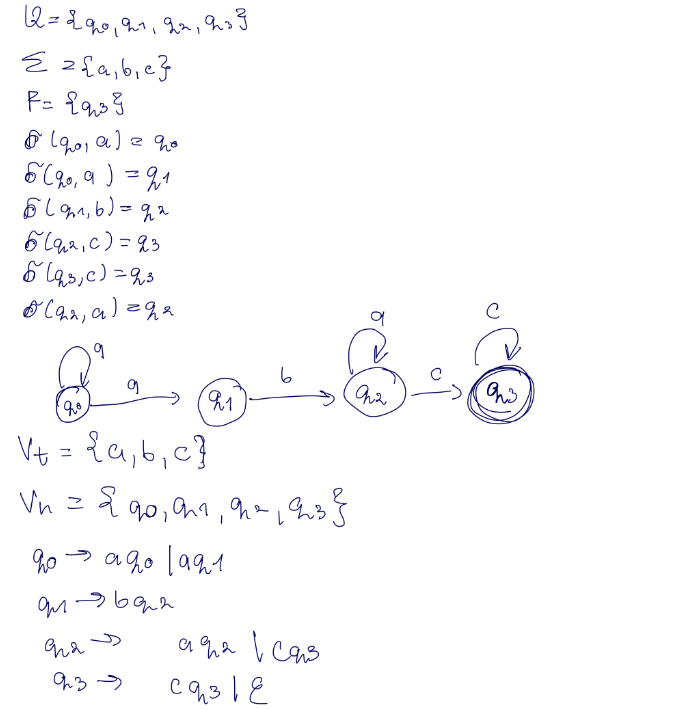 Q = {q0, q1, q2, q3}
Σ = {a, b, c}
F = {q3}
δ(q0, a) = q0
δ(q0, a) = q1
δ(q1, b) = q2
δ(q2, c) = q3
δ(q3, c) = q3
δ(q2, a) = q2
a a b a c c
q0 q1 q2 q3
Vt = {a, b, c}
Vn = {q0, q1, q2, q3}
q0 → aq0 | aq1
q1 → bq2
q2 → aq2 | cq3
q3 → cq3 | ε